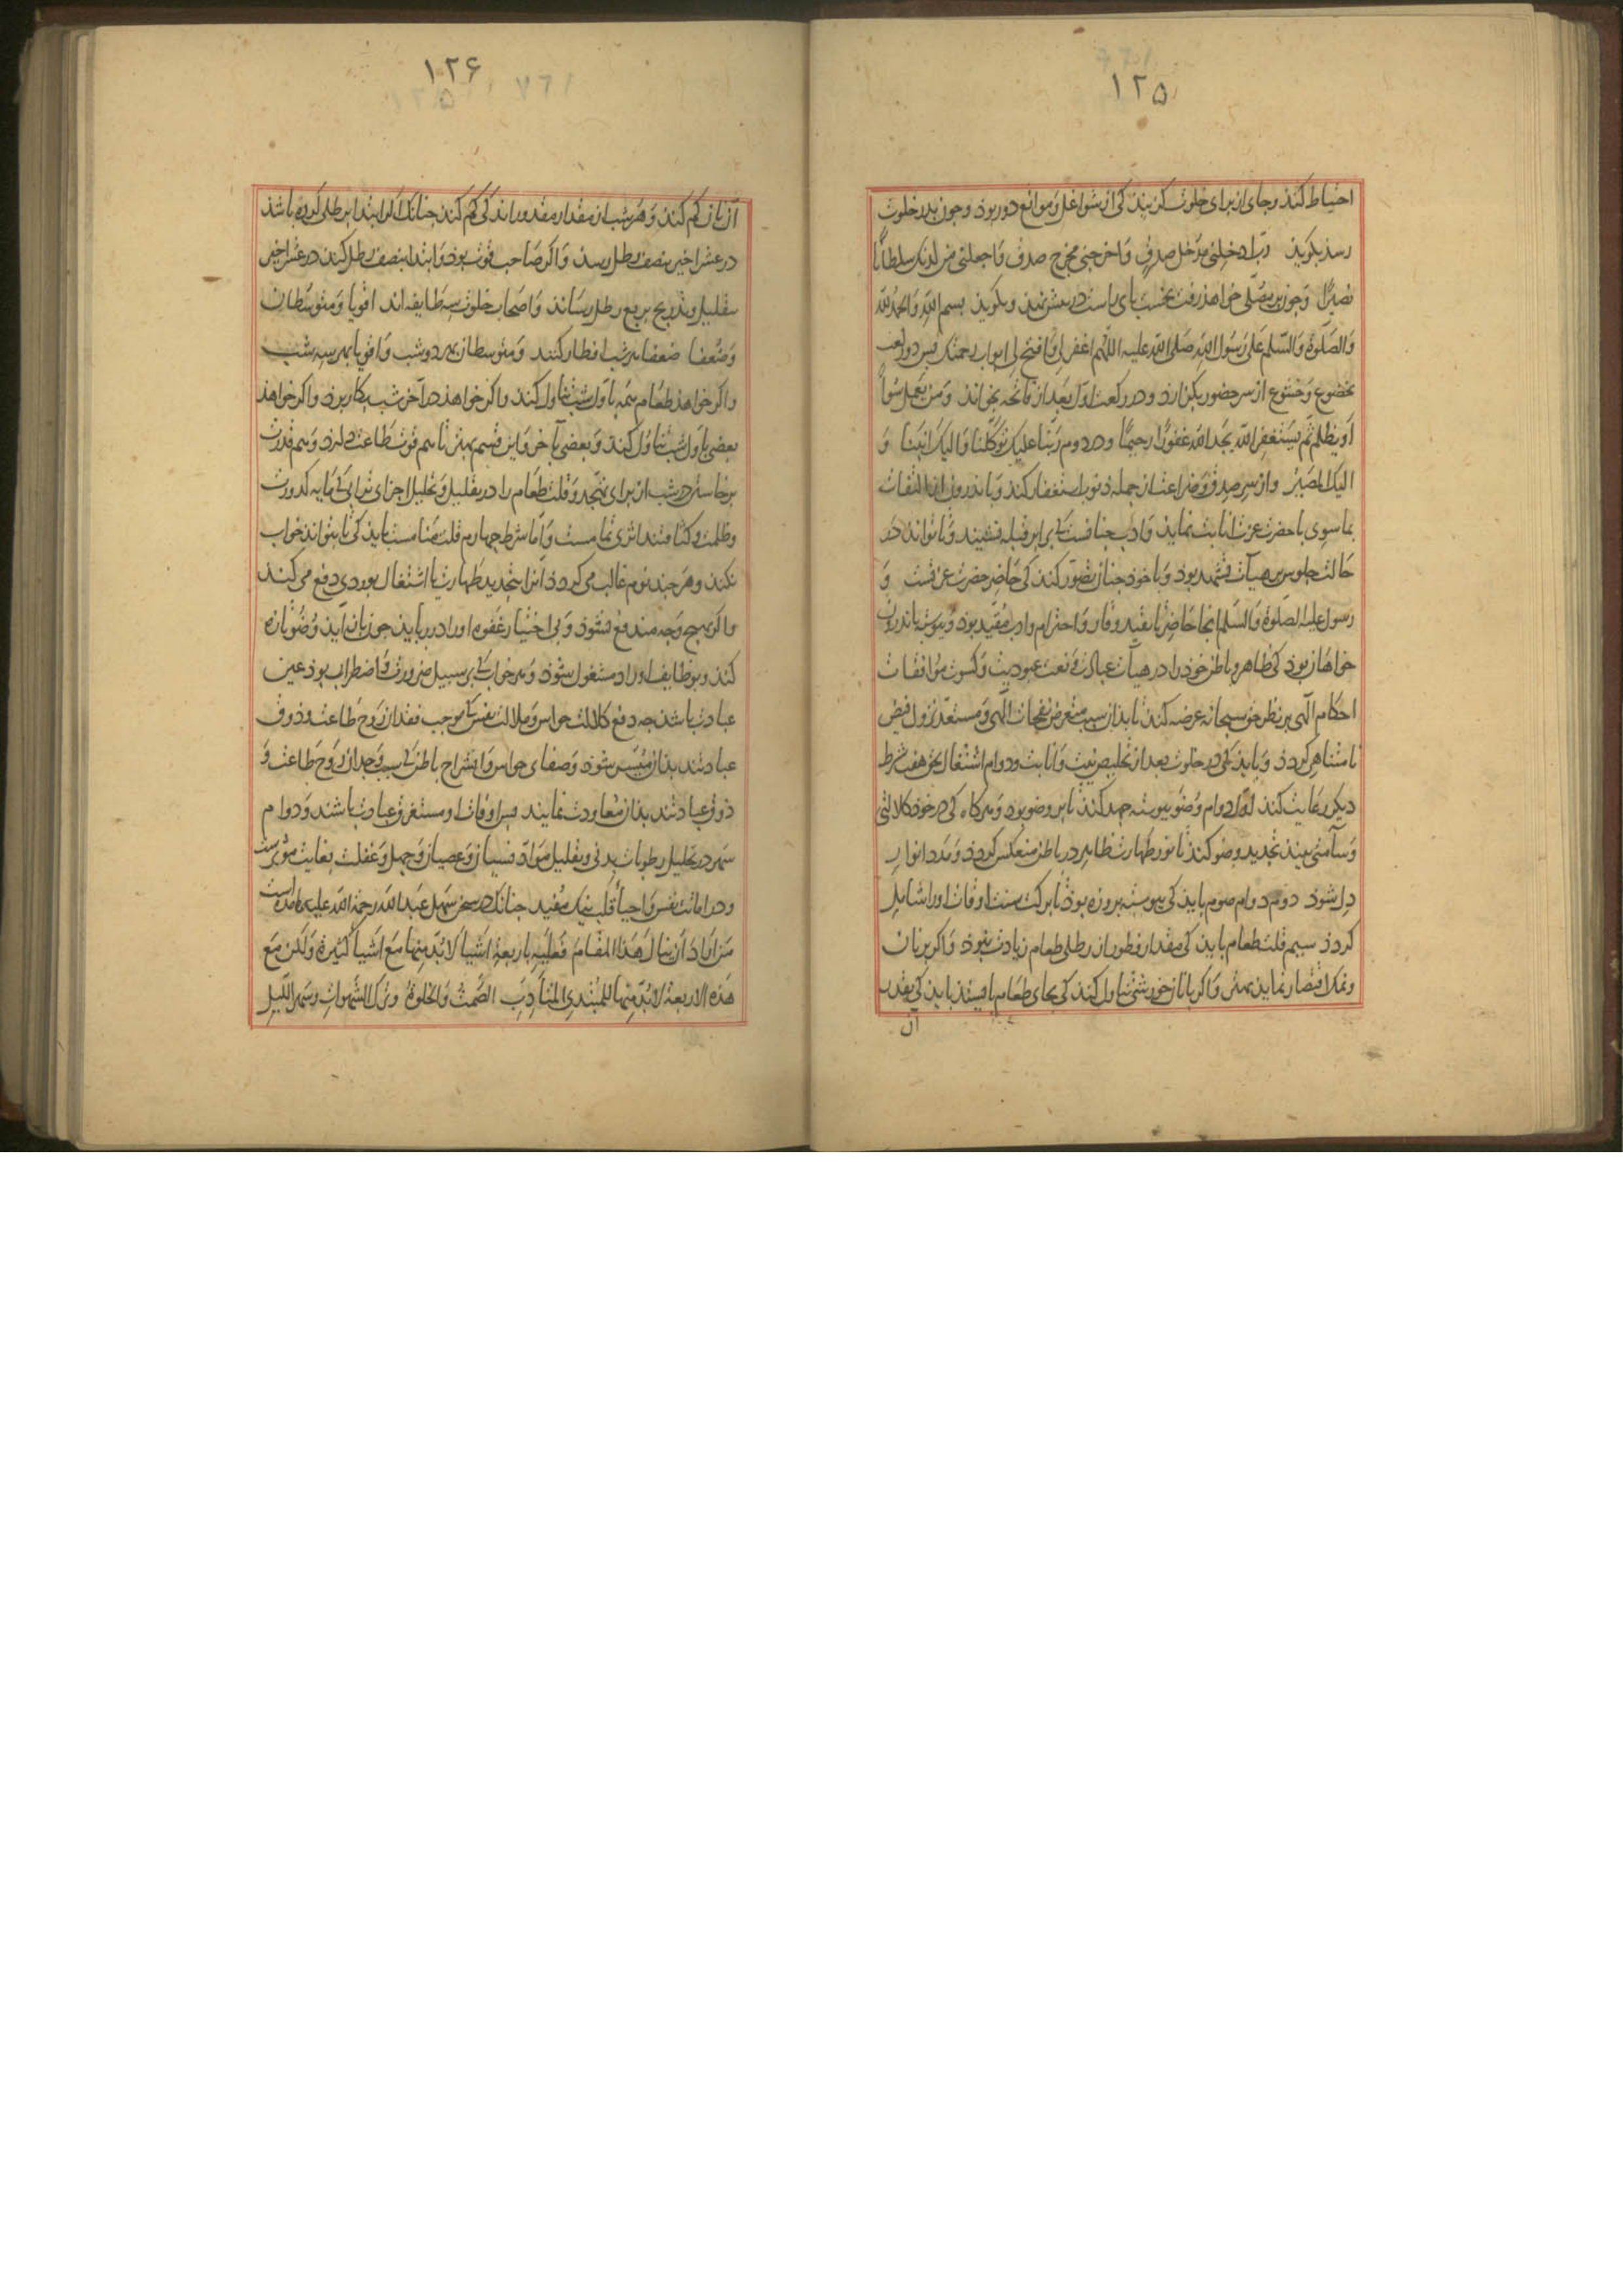 ١٢٥
احتیاط کند و جای از برای خلوت گزیند کی از شواغل و موانع دور بود و چون بدر خلوت
رسد بکوید رب ادخلنی مدخل صدق و اخرجنی مخرج صدق و اجعلنی من لدنک سلطانًا
نصیرًا و چون بر مصلّی خواهد رفت نخست پای راست در پیش نهد و بکوید بسم الله و الحمد لله
و الصلوة و السلم علی رسول الله صلی الله علیه اللهم اغفر لی و افتح لی ابواب رحمتک پس دو رکعت
بخضوع و خشوع از سر حضور بکزارد و در رکعت اول بعد از فاتحه بخواند و من یعمل سوأً
او یظلم ثم یستغفر الله یجد الله غفورًا رحیمًا و در دوم ربنا علیک توکلنا و الیک انبنا و
الیک المصیر و از سر صدق و ضراعت از جمله ذنوب استغفار کند و باندرون از التفات
بما سوی با حضرت عزت انابت نماید و ادب جنانست کی برابر قبله نشیند و تا تواند در
حالت جلوس بر هیأت تشهد بود و با خود جنان تصور کند کی حاضر حضرت عزتست و
رسول علیه الصلوة و السلم انجا حاضر تا بقید وقار و احترام و ادب مقید بود و پیوسته باندرون
خواهان بود کی ظاهر و باطن خود را در هیأت عبادت و نعت عبودیت و کسوت موافقات
احکام الهی بر نظر حق سبحانه عرضه کند تا بدان سبب متعرض نفحات الهی و مستعد نزول فیض
نامتناهی کردد و باید کی در خلوت بعد از تخلیص نیت و انابت و دوام اشتغال بحق هفت شرط
دیکر رعایت کند اول دوام وضو پیوسته جهد کند تا بر وضو بود و هرکاه کی در خود کلالتی
و سآمتی بیند تجدید وضو کند تا نور طهارت ظاهر در باطن منعکس کردد و مدد انوار
دل شود دوم دوام صوم باید کی پیوسته بروزه بود تا برکت سنت اوقات او را شامل
کردد سیم قلت طعام باید کی مقدار فطور از رطلی طعام زیادت نبود و اکر بر نان
و نمک اقتصار نماید بهتر و اکر با نان خورشتی تناول کند کی بجای طعام بایستد باید کی بقدر
آن
١٢۶
آن نان کم کند و هر شب از مقدار مقدور اندکی کم کند جنانک اکر ابتدا بر طلی کرده باشد
در عشر اخیر بنصف رطل رسد و اکر صاحب قوت بود و ابتدا بنصف رطل کند در عشر اخیر
بتقلیل و تدریج بربع رطل رساند و اصحاب خلوت سه طایفه اند اقویا و متوسطان
و ضعفا ضعفا هر شب افطار کنند و متوسطان بهر دو شب و اقویا بهر سه شب
و اکر خواهد طعام همه باول شب تناول کند و اکر خواهد در آخر شب بکار برد و اکر خواهد
بعضی باول شب تناول کند و بعضی بآخر و این قسم بهتر تا هم قوت طاعت دارد و هم قدرت
برخاستن در شب از برای تهجد و قلت طعام را در تقلیل و تحلیل اجزای ترابی کی مایه کدورت
و ظلمت و کثافتند اثری تمامست و اما شرط چهارم قلت منامست باید کی تا بتواند خواب
نکند و هر چند نوم غالب می کردد انرا بتجدید طهارت یا اشتغال بوردی دفع می کند
و اکر بهیج وجه مندفع نشود و بی اختیار غفوه او را درربابد چون باز آید وضو تازه
کند و بوظایف اوراد مشغول شود و هر خواب کی بر سبیل ضرورت و اضطراب بود عین
عبادت باشد چه دفع کلالت حواس و ملالت نفس کی موجب فقدان روح طاعت و ذوق
عبادتند بدان میسر شود و صفای حواس و انشراح باطن کی سبب وجدان روح طاعت و
ذوق عبادتند بدان معاودت نمایند پس اوقات او مستغرق عبادت باشند و دوام
سهر در تحلیل رطوبات بدنی و تقلیل مواد نسیان و عصیان و جهل و غفلت بغایت مؤثرست
و در اماتت نفس و احیأ قلب نیک مفید جنانک در سخن سهل عبد الله رحمة الله علیه آمده است
من اراد ان ینال هذا المقام فعلیه باربعة اشیأ لا بد منها مع اشیأ کثیرة و لکن مع
هذه الاربعة لا بد منها للمبتدی المتأدب الصمت و الخلوة و ترک الشهوات و سهر اللیل